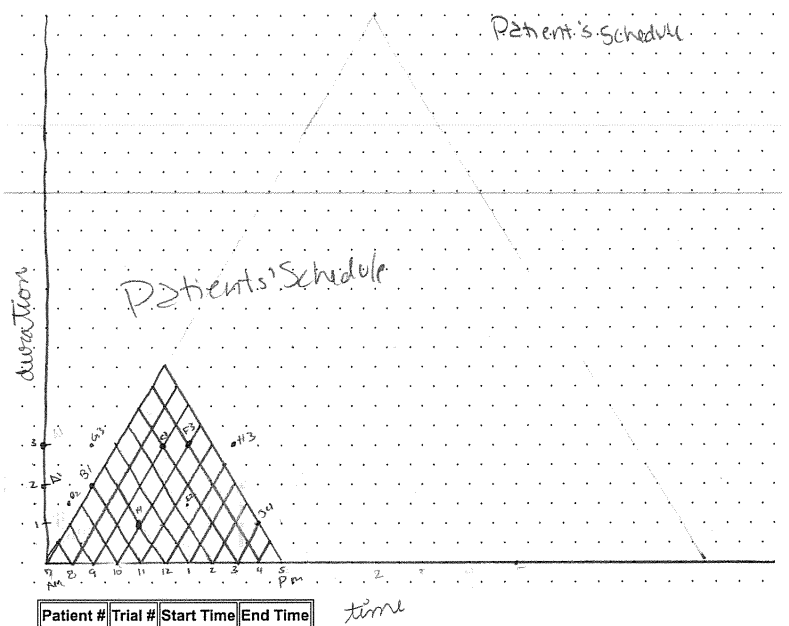 Patient's Schedule
Patients' Schedule
duration
3
G3
F3
H3
2
B1
D2
J4
1
7 8 9 10 11 12 1 2 3 4 5
Am
Pm
2
time
Patient # Trial # Start Time End Time